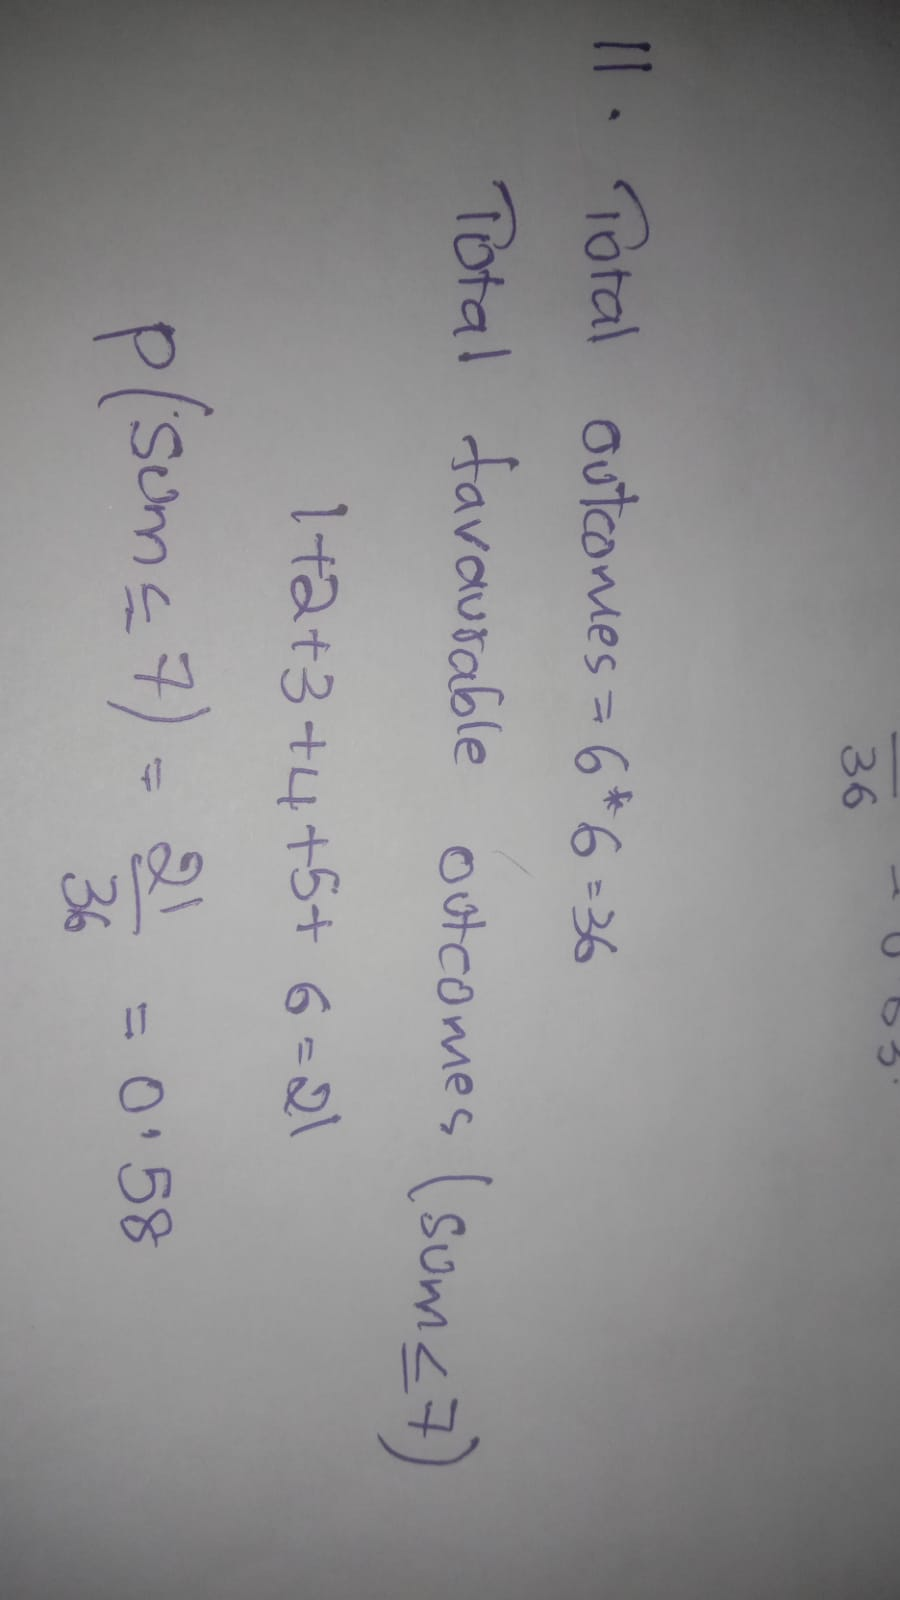 36 = 0.63.
11. Total outcomes = 6 * 6 = 36
Total favaurable outcomes (sum ≤ 7)
1+2+3+4+5+ 6 = 21
P(sum ≤ 7) = 21/36 = 0.58